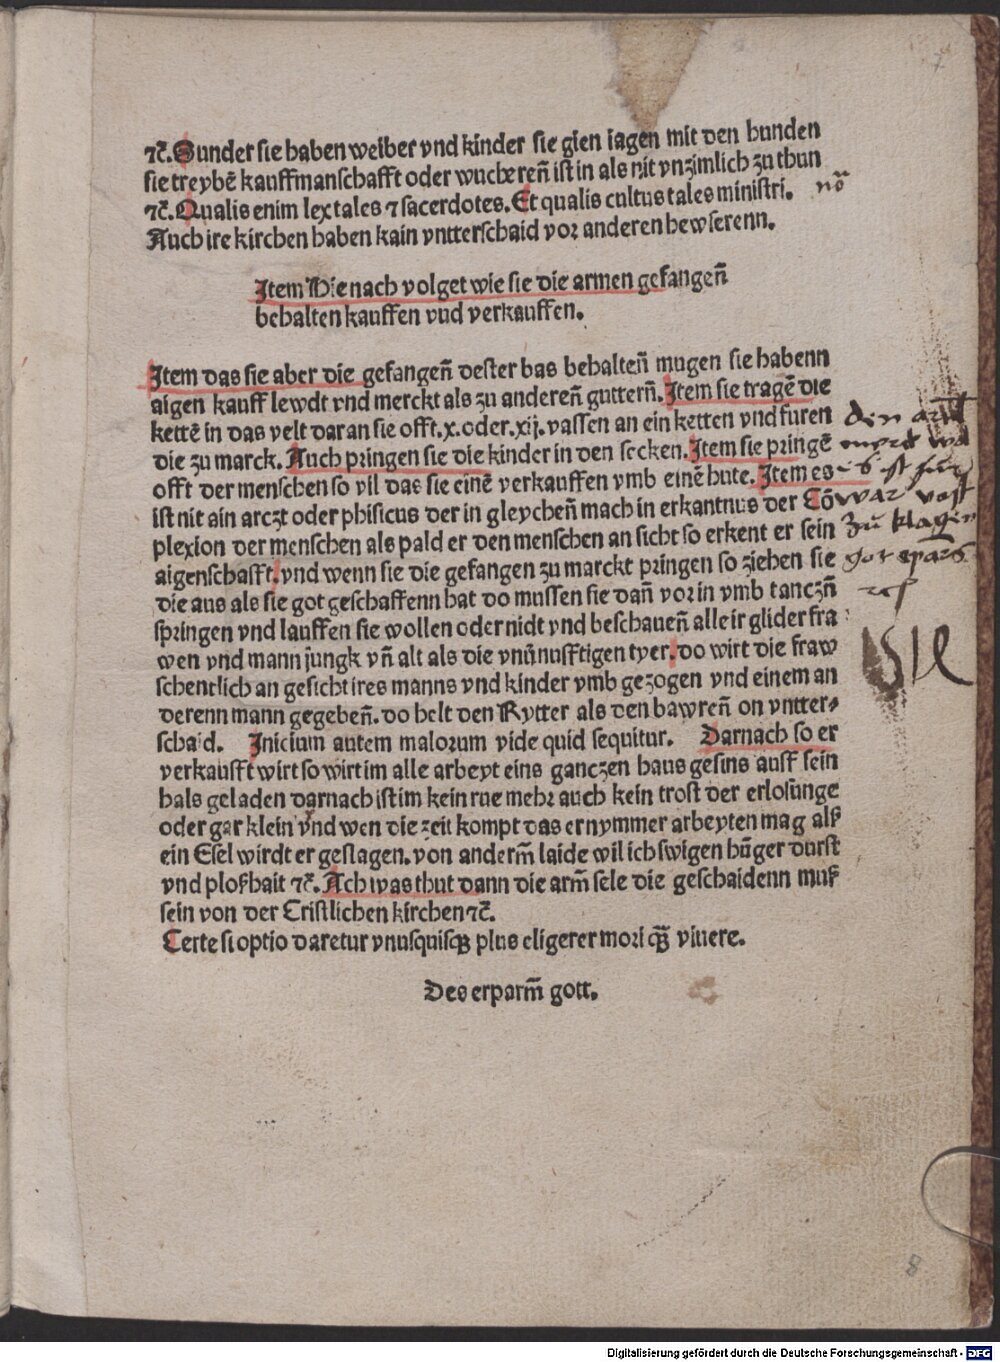 ⁊c̄. Sunder sie haben weiber vnd kinder sie gien iagen mit den hunden
sie treybē kauffmanschafft oder wucheren̄ ist in als nit vnzimlich zu thun
⁊c̄. Qualis enim lex tales ⁊ sacerdotes. Et qualis cultus tales ministri.
nō
Auch ire kirchen haben kain vntterschaid vor anderen hewserenn.
Item Hie nach volget wie sie die armen gefangen̄
behalten kauffen vnd verkauffen.
Item das sie aber die gefangen̄ dester bas behalten̄ mugen sie habenn
aigen kauff lewdt vnd merckt als zu anderen̄ guttern̄. Item sie tragē die
kettē in das velt daran sie offt .x. oder .xij. vassen an ein ketten vnd furen
die zu marck. Auch pringen sie die kinder in den secken. Item sie pringē
offt der menschen so vil das sie einē verkauffen vmb einē hute. Item es
ist nit ain arczt oder phisicus der in gleychen̄ mach in erkantnus der Cō
plexion der menschen als pald er den menschen an sicht so erkent er sein
aigenschafft. vnd wenn sie die gefangen zu marckt pringen so ziehen sie
die aus als sie got geschaffenn hat do mussen sie dan̄ vor in vmb tanczn̄
springen vnd lauffen sie wollen oder nidt vnd beschauen̄ alle ir glider fra
wen vnd mann jungk vn̄ alt als die vnu̇nufftigen tyer. do wirt die fraw
schentlich an gesicht ires manns vnd kinder vmb gezogen vnd einem an
derenn mann gegeben̄. do helt den Rytter als den bawren̄ on vntter⸗
schaid. Inicium autem malorum vide quid sequitur. Darnach so er
verkaufft wirt so wirt im alle arbeyt eins ganczen haus gesins auff sein
hals geladen darnach ist im kein rue mehr auch kein trost der erlosunge
oder gar klein vnd wen die zeit kompt das er nymmer arbeyten mag alß
ein Esel wirdt er geslagen. von anderm̄ laide wil ich swigen hu̇ger durst
vnd ploßhait ⁊c̄. Ach was thut dann die arm̄ sele die geschaidenn muß
sein von der Cristlichen kirchen ⁊c̄.
Certe si optio daretur vnusquisqꝫ plus eligerer mori qꝫ̄ viuere.
Des erparm̄ gott.
den
war vast
zu klagen
got
8
Digitalisierung gefördert durch die Deutsche Forschungsgemeinschaft - DFG